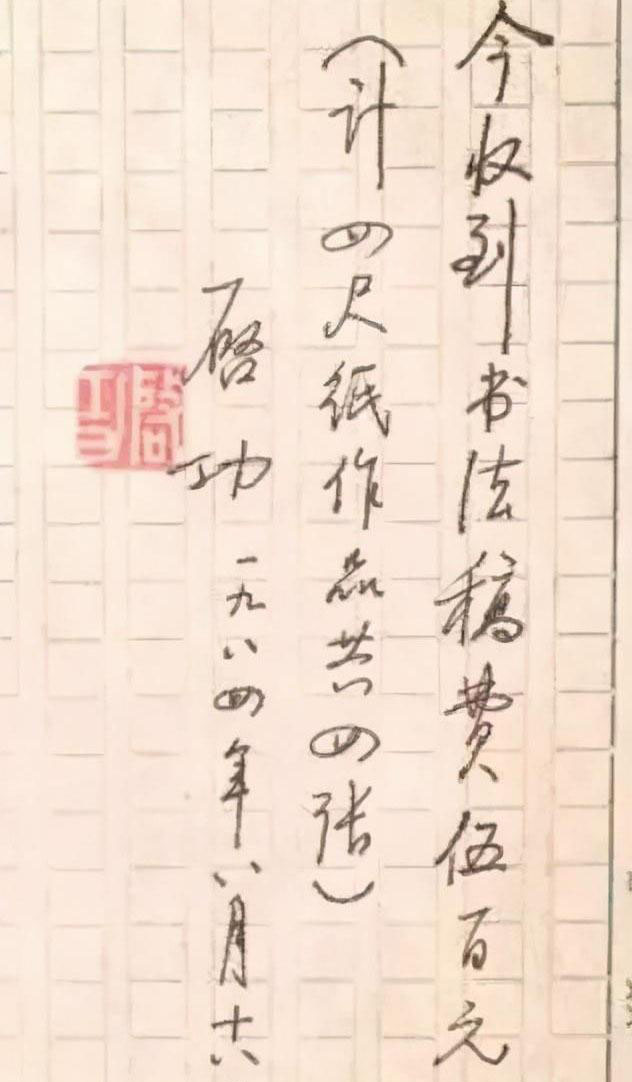 今收到书法稿费伍百元
（计四尺纸作品共四张）
启功 一九八四年八月十八
启功